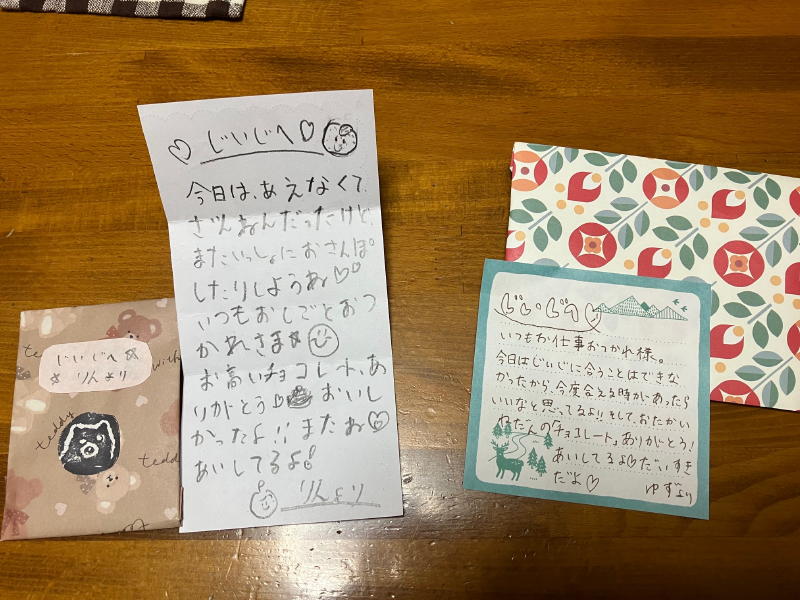 じいじへ
りんより
teddy
with
ted
te
じいじへ
今日は、あえなくて、
ざんねんだったけど、
またいっしょにおさんぽ
したりしようね♡
いつもおしごとおつ
かれさま☆
お高いチョコレート、あ
りがとう おいし
かったよ!!またね♡
あいしてるよ!
りんより
じぃじへ♡
いつもお仕事おつかれ様。
今日はじぃじに合うことはできな
かったから、今度会える時があったら
いいなと思ってるよ!そして、おたかい
ねだんの「チョコレート」ありがとう!
あいしてるよ♡だいすき
だよ♡
ゆずより